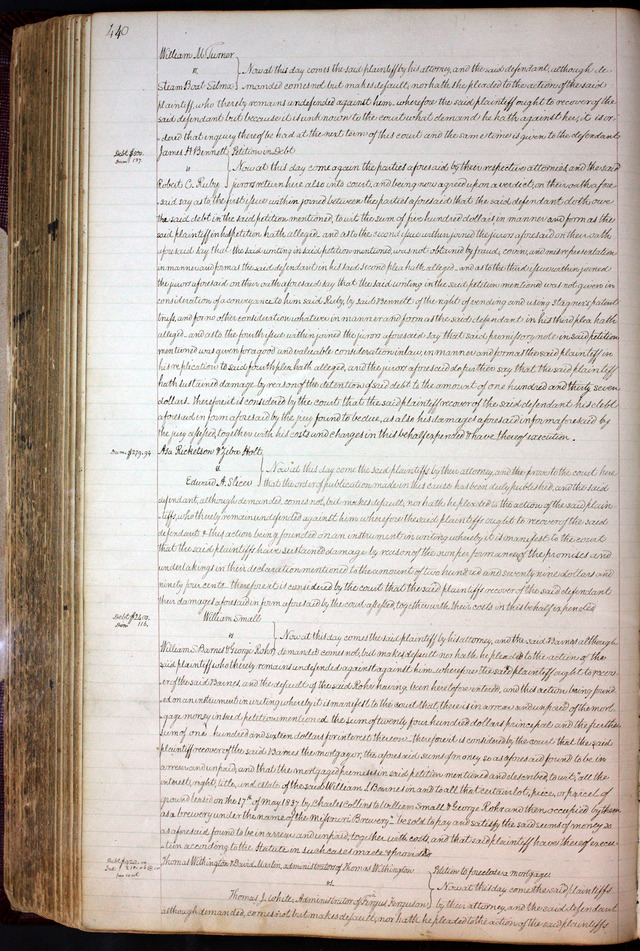 440
William M. Turner
vs } Now at this day comes the said plaintiff by his attorney, and the said defendant, although de
Steam Boat Selma manded comes not but makes default, nor hath she pleaded to the action of the said
plaintiff, who thereby remains undefended against him, wherefore the said plaintiff ought to recover of the
said defendant but because it is unknown to the court what demand he hath against her, it is or
dered that inquiry thereof be had at the next term of this court and the same time is given to the defendant
Debt $500.
Dam 137.
James H. Bennett Petition in Debt
vs } Now at this day come again the parties aforesaid by their respective attornies, and the said
Robert C. Ruby jurors return here also into court, and being now agreed upon a verdict, on their oath afore
said say as to the first issue within joined between the parties aforesaid that the said defendant doth owe
the said debt in the said petition mentioned, to wit the sum of five hundred dollars in manner and form as the
said plaintiff in his petition hath alleged, and as to the second issue within joined the jurors aforesaid on their oath
aforesaid say that the said writing in said petition mentioned, was not obtained by fraud, covin, and misrepresentation
in manner and form as the said defendant in his said second plea hath alleged, and as to the third issue within joined
the jurors aforesaid on their oath aforesaid say that the said writing in the said petition mentioned was not given in
consideration of a conveyance to him said Ruby, by said Bennett of the right of vending and using Stagner's patent
truss, and for no other consideration whatever in manner and form as the said defendant in his third plea hath
alleged and as to the fourth issue within joined the jurors aforesaid say that said promissory note in said petition
mentioned was given for a good and valuable consideration in law, in manner and form as the said plaintiff in
his replication to said fourth plea hath alleged, and the jurors aforesaid do further say that the said plaintiff
hath sustained damage by reason of the detention of said debt to the amount of one hundred and thirty seven
dollars. Therefore it is considered by the court that the said plaintiff recover of the said defendant his debt
aforesaid in form aforesaid by the jury found to be due, as also his damages aforesaid in form aforesaid by
the jury assessed, together with his costs and charges in this behalf expended & have thereof execution.
Dam. $279.94
Asa Ricketson & Zeba Holt
vs } Now at this day come the said plaintiffs by their attorney, and the prove to the court here
Edward A. Slicer that the order of publication made in this cause has been duly published, and the said
defendant, although demanded, comes not, but makes default, nor hath he pleaded to the action of the said plain
tiffs, who thereby remain undefended against him wherefore the said plaintiffs ought to recover of the said
defendant & this action being founded on an instrument in writing whereby it is manifest to the court
that the said plaintiffs have sustained damage by reason of the nonperformance of the promises and
undertakings in their declaration mentioned to the amount of two hundred and seventy nine dollars and
ninety four cents therefore it is considered by the court that the said plaintiffs recover of the said defendant
their damages aforesaid in form aforesaid by the court assessed, together with their costs in this behalf expended
Debt $2400.
Dam 116.
William Small
vs } Now at this day comes the said plaintiff by his attorney, and the said Barnes although
William S. Barnes & George Rohr demanded comes not, but makes default nor hath he pleaded to the action of the
said plaintiff who thereby remains undefended against against him, wherefore the said plaintiff ought to recov
er of the said Barnes and the default of the said Rohr having been heretofore entered, and this action being found
ed on an instrument in writing whereby it is manifest to the court that there is in arrear and unpaid of the mort
gage money in said petition mentioned the sum of twenty four hundred dollars principal and the further
sum of one hundred and sixteen dollars for interest thereon. Therefore it is considered by the court that the said
plaintiff recover of the said Barnes the mortgagor, the aforesaid sums of money so as aforesaid found to be in
arrear and unpaid, and that the mortgaged premises in said petition mentioned and described, to wit; "all the
interest, right, title, and estate of the said William S Barnes in and to all that certain lot, piece, or parcel of
ground leased on the 17th of May 1837 by Charles Collins to William Small & George Rohr and then occupied by them
as a brewery under the name of the Missouri Brewery" be sold to pay and satisfy the said sums of money so
as aforesaid found to be in arrear and unpaid, together with costs, and that said plaintiff have thereof execu
tion according to the Statute in such cases made & provided
Thomas Withington & David Merton, administrators of Thomas Withington } Petition to foreclose a mortgage
vs } Now at this day come the said plaintiffs
Thomas J. White, Administrator of Fergus Ferguson by their attorney, and the said defendant
although demanded, comes not but makes default, nor hath he pleaded to the action of the said plaintiffs